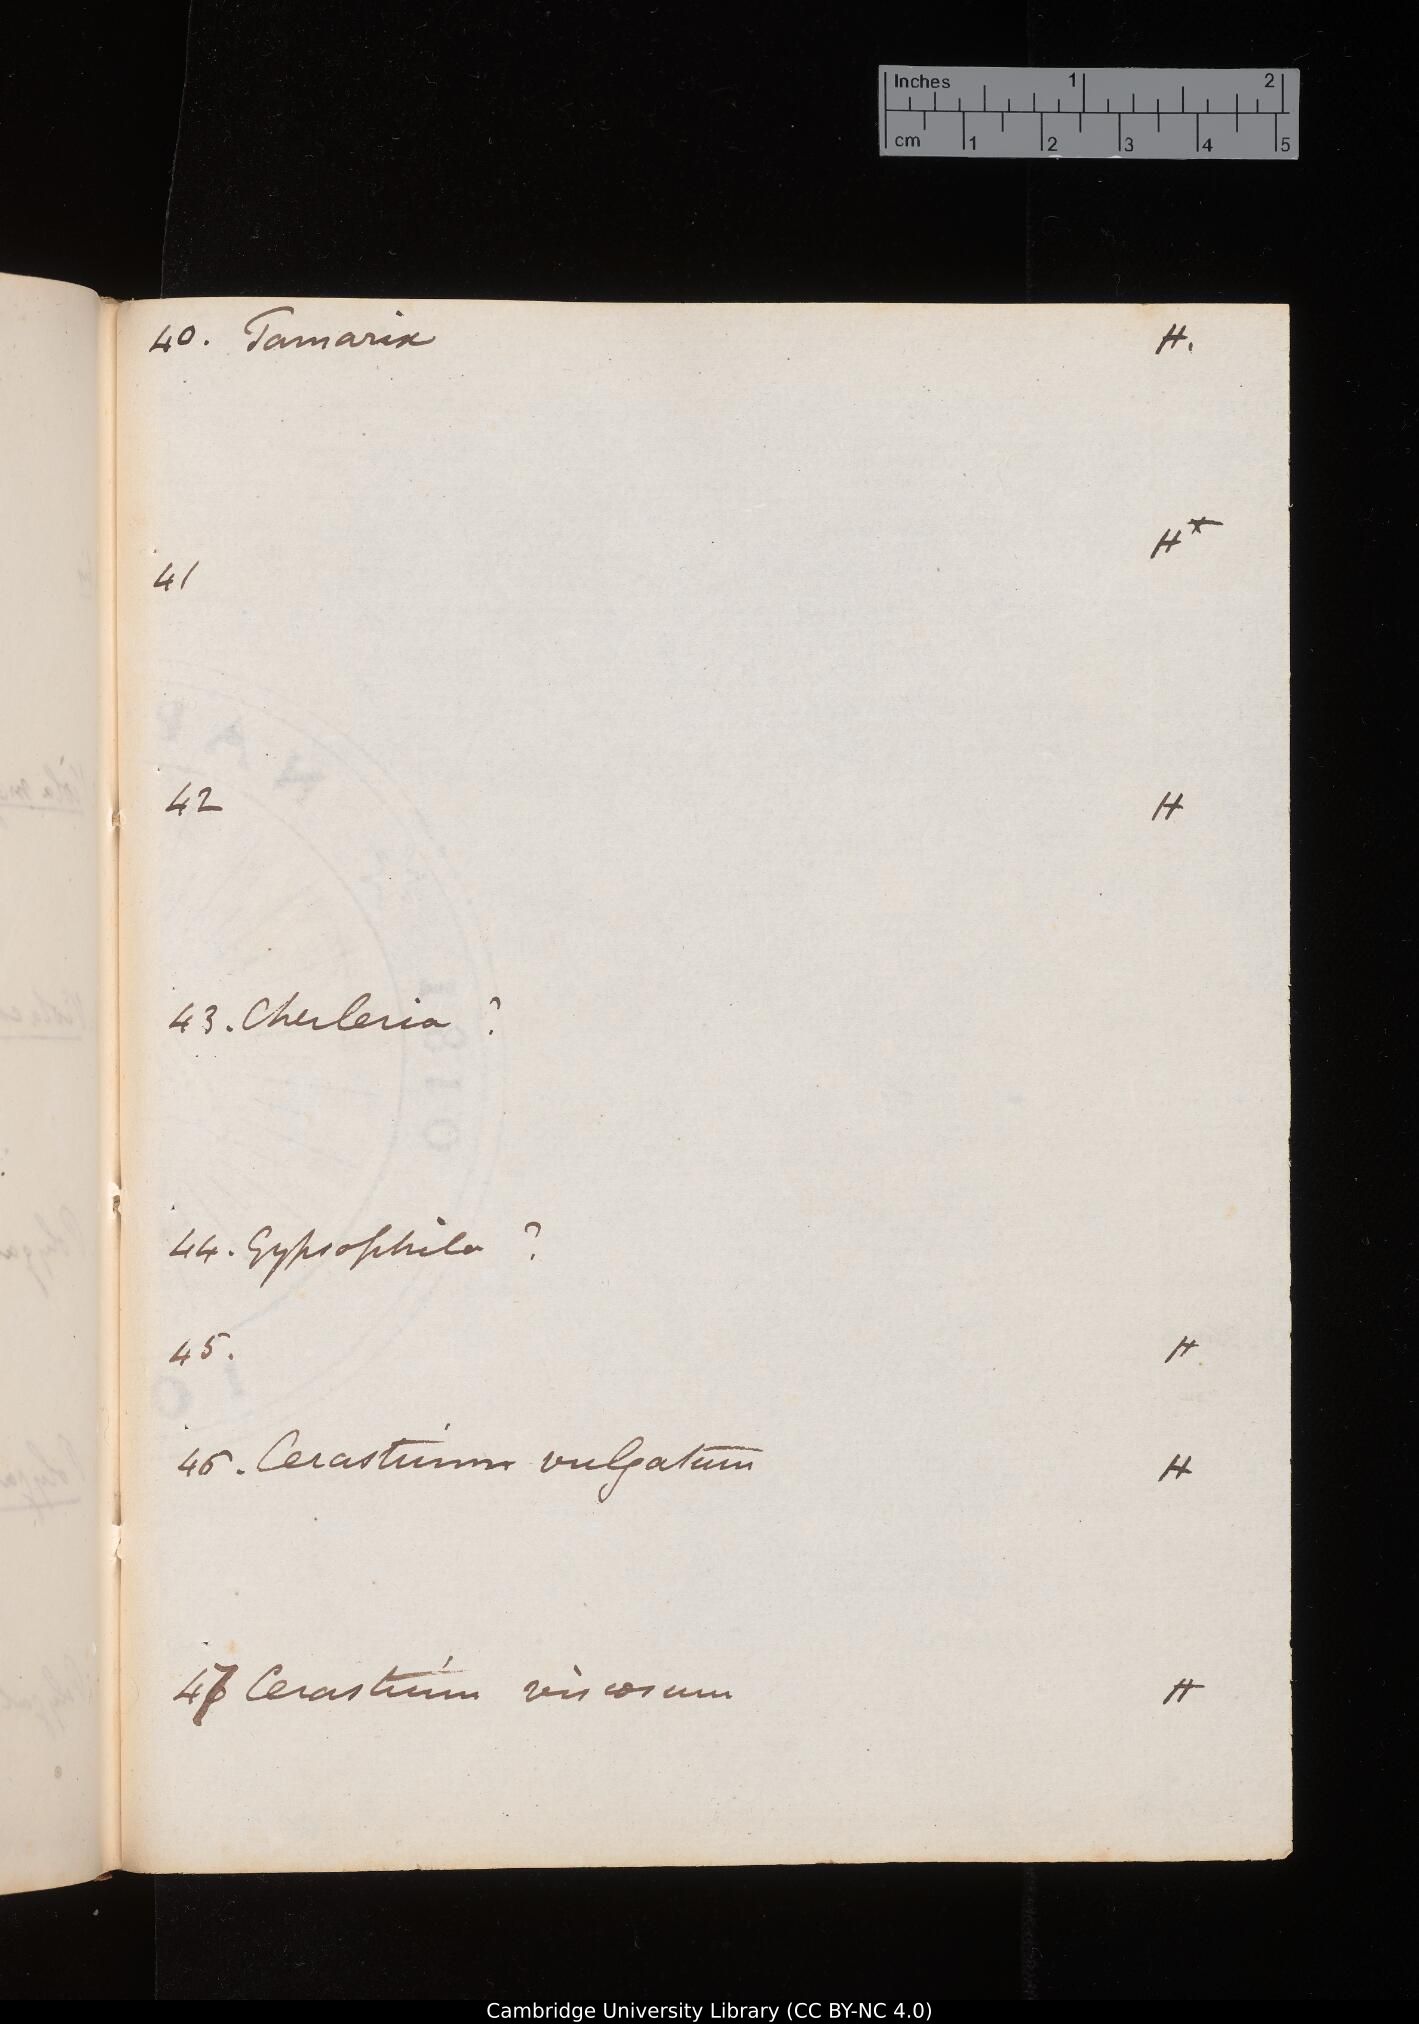 Inches 1 2
cm 1 2 3 4 5
40. Tamarix H.
41 H*
42 H
43. Cherleria ?
44. Gypsophila ?
45. H
46. Cerastium vulgatum H
47 Cerastium viscosum H
Cambridge University Library (CC BY-NC 4.0)